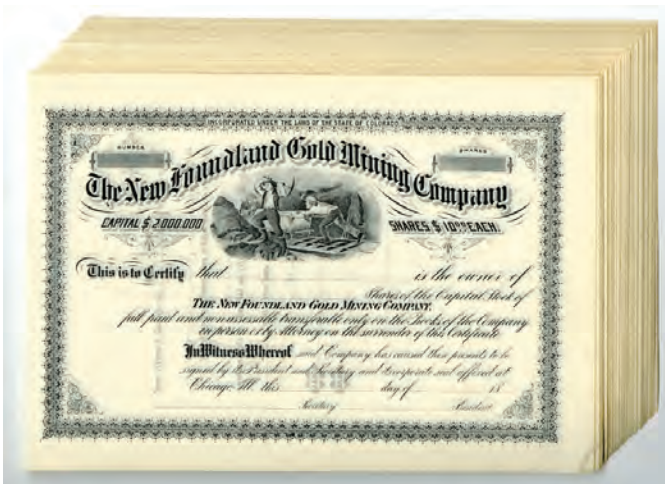 INCORPORATED UNDER THE LAWS OF THE STATE OF COLORADO.
NUMBER
SHARES
The New Foundland Gold Mining Company
CAPITAL $ 2.000.000. SHARES $ 10.00 EACH.
This is to Certify that is the owner of
Shares of the Capital Stock of
THE NEW FOUNDLAND GOLD MINING COMPANY,
full paid and nonassessable transferable only on the Books of the Company
in person or by Attorney on the surrender of this Certificate
In Witness Whereof said Company has caused these presents to be
signed by its President and Secretary and its corporate seal affixed at
Chicago Ill. this day of 18
Secretary President